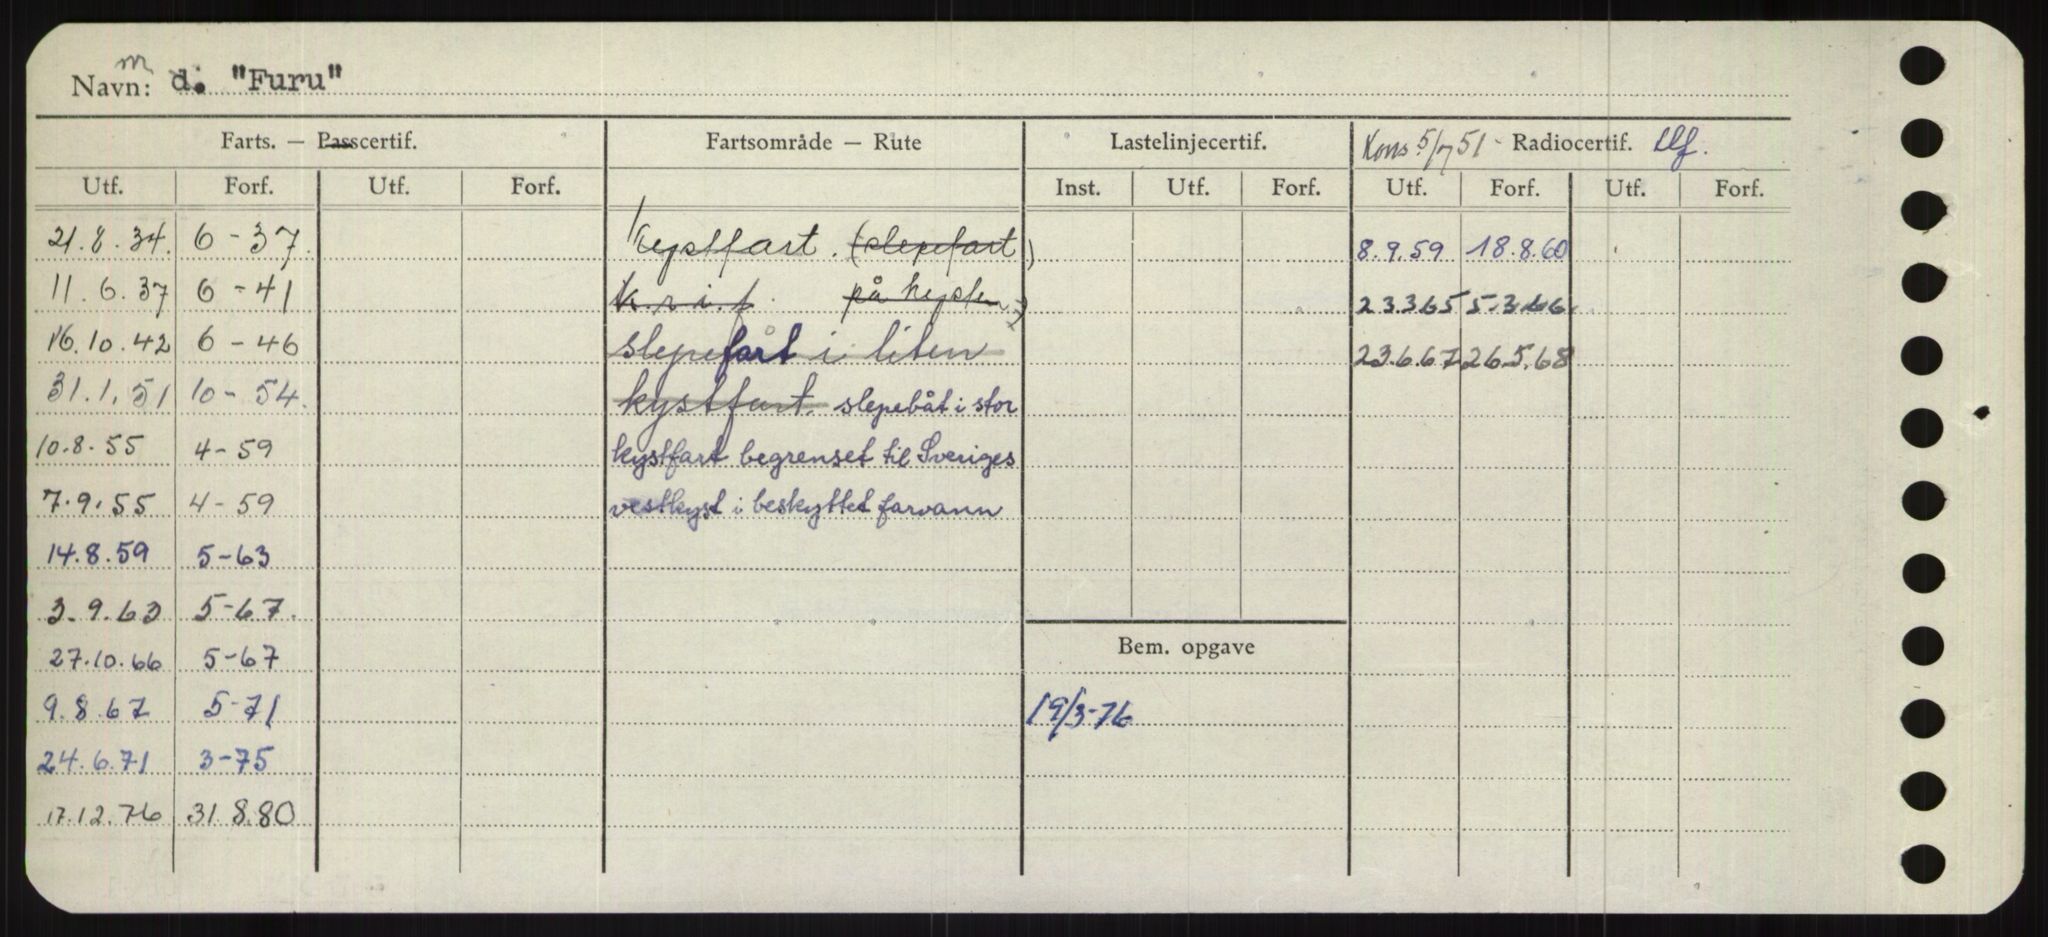 m
Navn: d. "Furu"
Farts. — Passcertif. Fartsområde — Rute Lastelinjecertif. Kons. 5/7 51 - Radiocertif. tlf.
Utf. Forf. Utf. Forf. Inst. Utf. Forf. Utf. Forf. Utf. Forf.
21.8.34. 6-37. Kystfart. (slepefart 8.9.59 18.8.60
11.6.37 6-41 K.r.i.f. på kysten) 23.3.65 5.3.66.
16.10.42 6-46 slepefart i liten 23.6.67 26.5.68
31.1.51 10-54. kystfart. slepebåt i stor
10.8.55 4-59 kystfart begrenset til Sveriges
7.9.55 4-59 vestkyst i beskyttet farvann
14.8.59 5-63
3.9.63 5-67.
27.10.66 5-67 Bem. opgave
9.8.67 5-71 19/3-76
24.6.71 3-75
17.12.76 31.8.80